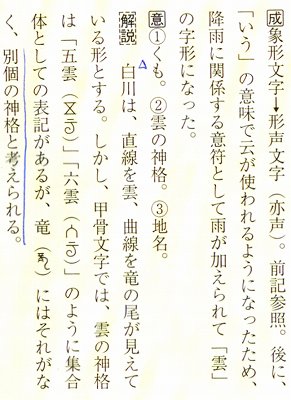 成象形文字→形声文字(亦声)。前記参照。後に、
「いう」の意味で云が使われるようになったため、
降雨に関係する意符として雨が加えられて「雲」
の字形になった。
意①くも。②雲の神格。③地名。
解説 白川は、直線を雲、曲線を竜の尾が見えて
いる形とする。しかし、甲骨文字では、雲の神格
は「五雲()」「六雲()」のように集合
体としての表記があるが、竜()にはそれがな
く、別個の神格と考えられる。